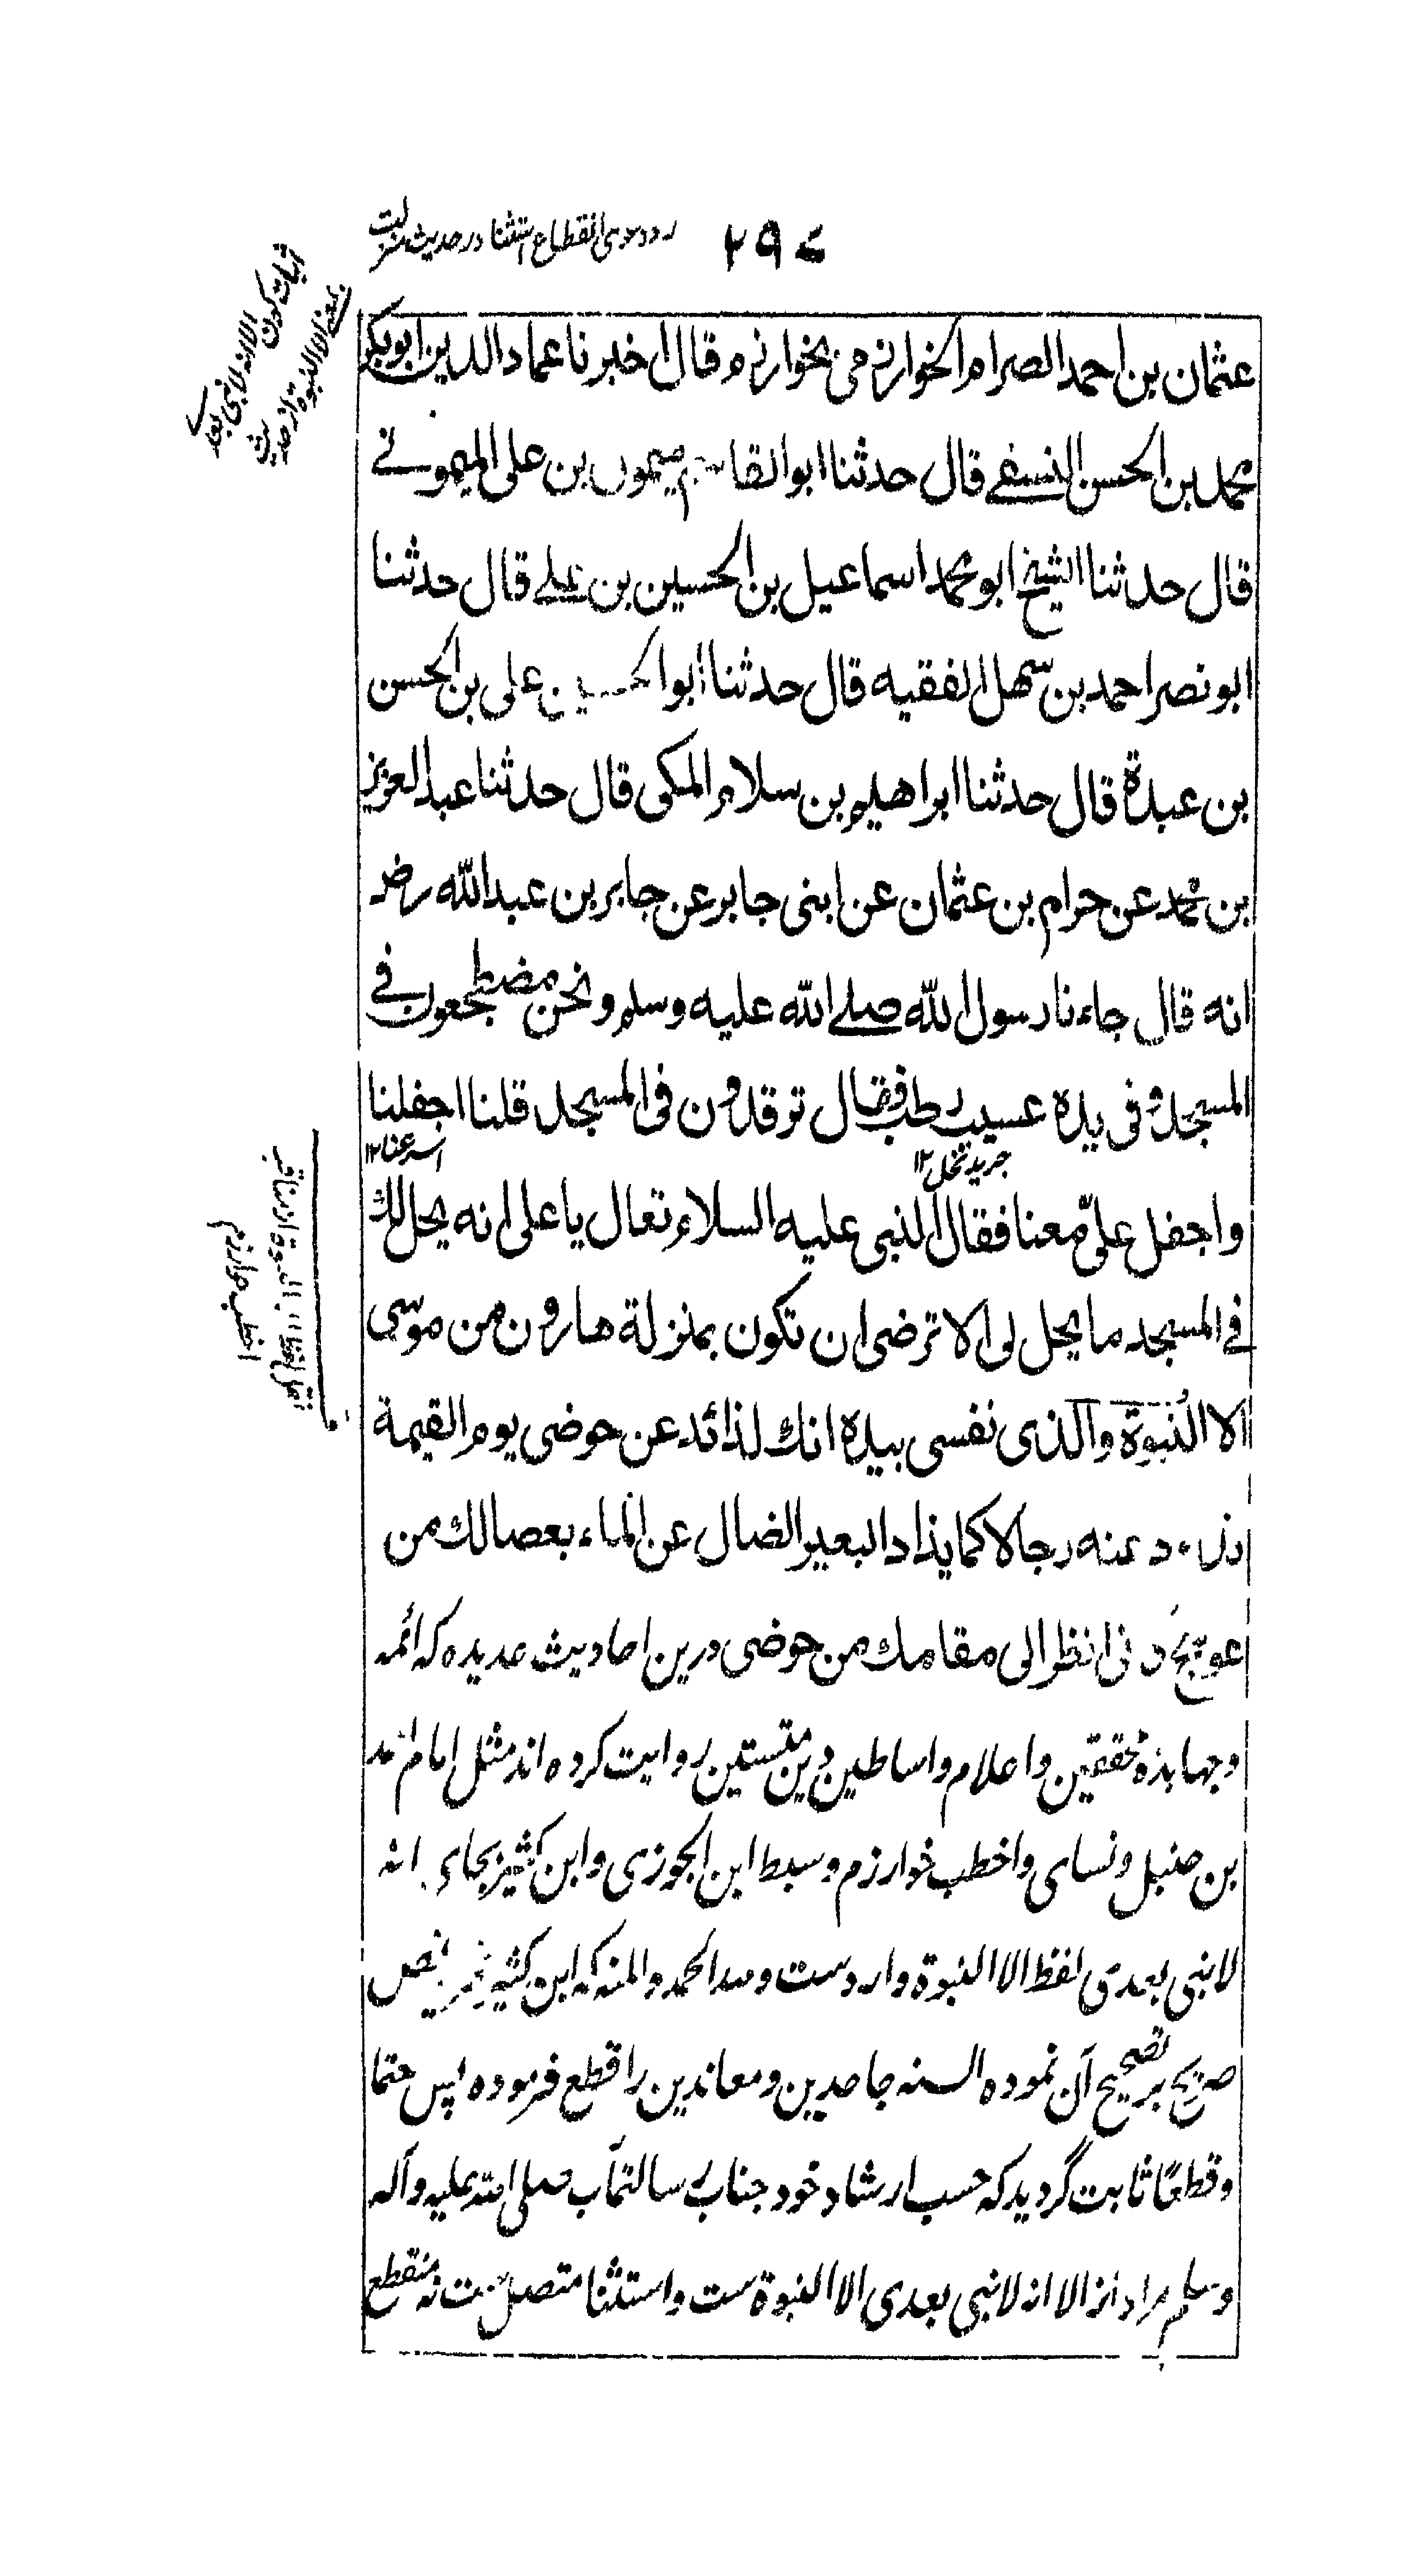 ۲۹۷ رد دعوی انقطاع استثنا در حدیث منزلت
اثبات کردن الا انه لا نبی بعدی
بمعنی الا النبوة از حدیث
عثمان بن احمد الصرام الخوارزمی بخوارزم قال اخبرنا عماد الدین ابو بکر
محمد بن الحسن النسفی قال حدثنا ابو القاسم میمون بن علی المیمونی
قال حدثنا الشیخ ابو محمد اسماعیل بن الحسین بن علی قال حدثنا
ابو نصر احمد بن سهل الفقیه قال حدثنا ابو الحسین علی بن الحسن
بن عبدة قال حدثنا ابراهیم بن سلام المکی قال حدثنا عبد العزیز
بن محمد عن حرام بن عثمان عن ابنی جابر عن جابر بن عبد الله رضـ
انه قال جاءنا رسول الله صلی الله علیه وسلم ونحن مضطجعون فی
المسجد وفی یده عسیب رطب فقال ترقدون فی المسجد قلنا اجفلنا
جرید نخل ۱۲ اسرعنا ۱۲
واجفل علیّ معنا فقال النبی علیه السلام تعال یا علی انه یحل لك
فی المسجد ما یحل لی الا ترضی ان تکون بمنزلة هارون من موسی
الا النبوة والذی نفسی بیده انك لذائد عن حوضی یوم القیمة
تذود عنه رجالا کما یذاد البعیر الضال عن الماء بعصا لك من
عوسج کانی انظر الی مقامك من حوضی درین احادیث عدیده که ائمه
وجهابذهٔ محققین واعلام واساطین دین متین روایت کرده اند مثل امام احمد
بن حنبل ونسای واخطب خوارزم وسبط ابن الجوزی وابن کثیر بجاء انه
لا نبی بعدی لفظ الا النبوة وارد ست ولله الحمد والمنه که ابن کثیر بنص
صریح بر تصحیح آن نموده السنه جاحدین ومعاندین را قطع فرموده پس حتما
وقطعًا ثابت گردید که حسب ارشاد خود جناب رسالتمآب صلی الله علیه وآله
وسلم مراد از الا انه لا نبی بعدی الا النبوة ست واستثنا متصل ست نه منقطع
نقل لفظ الا النبوة از مناقب
اخطب خوارزم